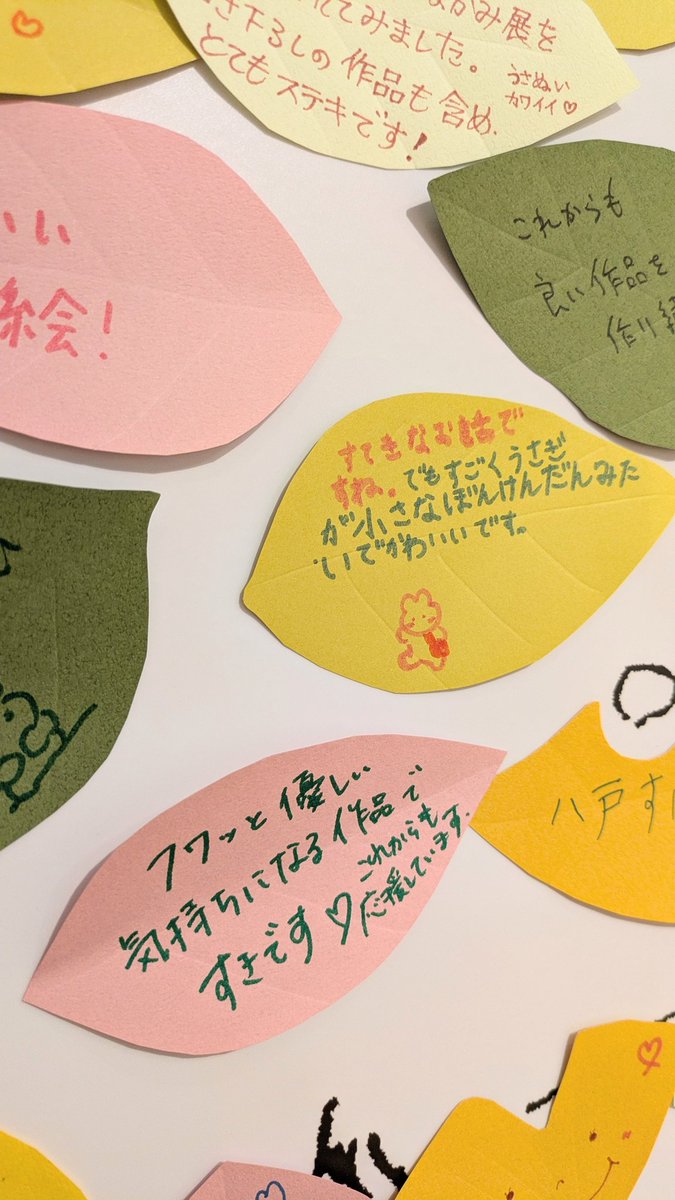 なかみ展を
れてみました。
き下ろしの作品も含め、
とてもステキです!
うさぬい
カワイイ♡
いい
絵!
これからも
良い作品を
作り続
すてきなお話で
すね。でもすごくうさぎ
が小さなぼんけんだんみた
いでかわいいです。
フワッと優しい
気持ちになる作品で
すきです♡
これからも
応援しています。
八戸す